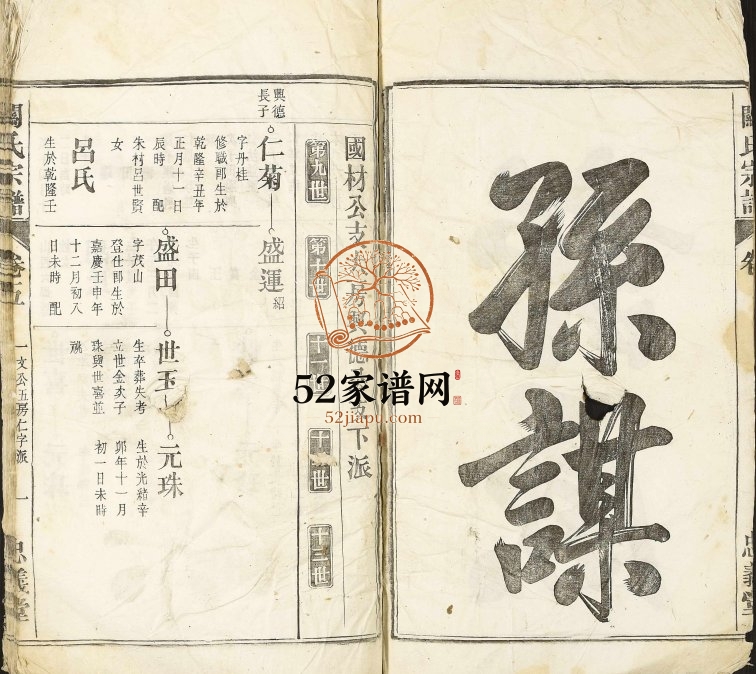 孫謀
忠義堂
國材公支
德
下派
第九世
十三世
興德
長子
仁菊
盛運
紹
字丹桂
修職郎生於
乾隆辛丑年
正月十一日
辰時 配
朱村呂世賢
女
呂氏
生於乾隆壬
盛田
字茂山
登仕郎生於
嘉慶壬申年
十二月初八
日未時 配
世玉
生卒葬失考
立世金次子
珠與世喜並
祧
元珠
生於光緒辛
卯年十一月
初一日未時
關氏宗譜
卷之五
一文公五房仁字派
一
忠義堂
52家谱网
52jiapu.com